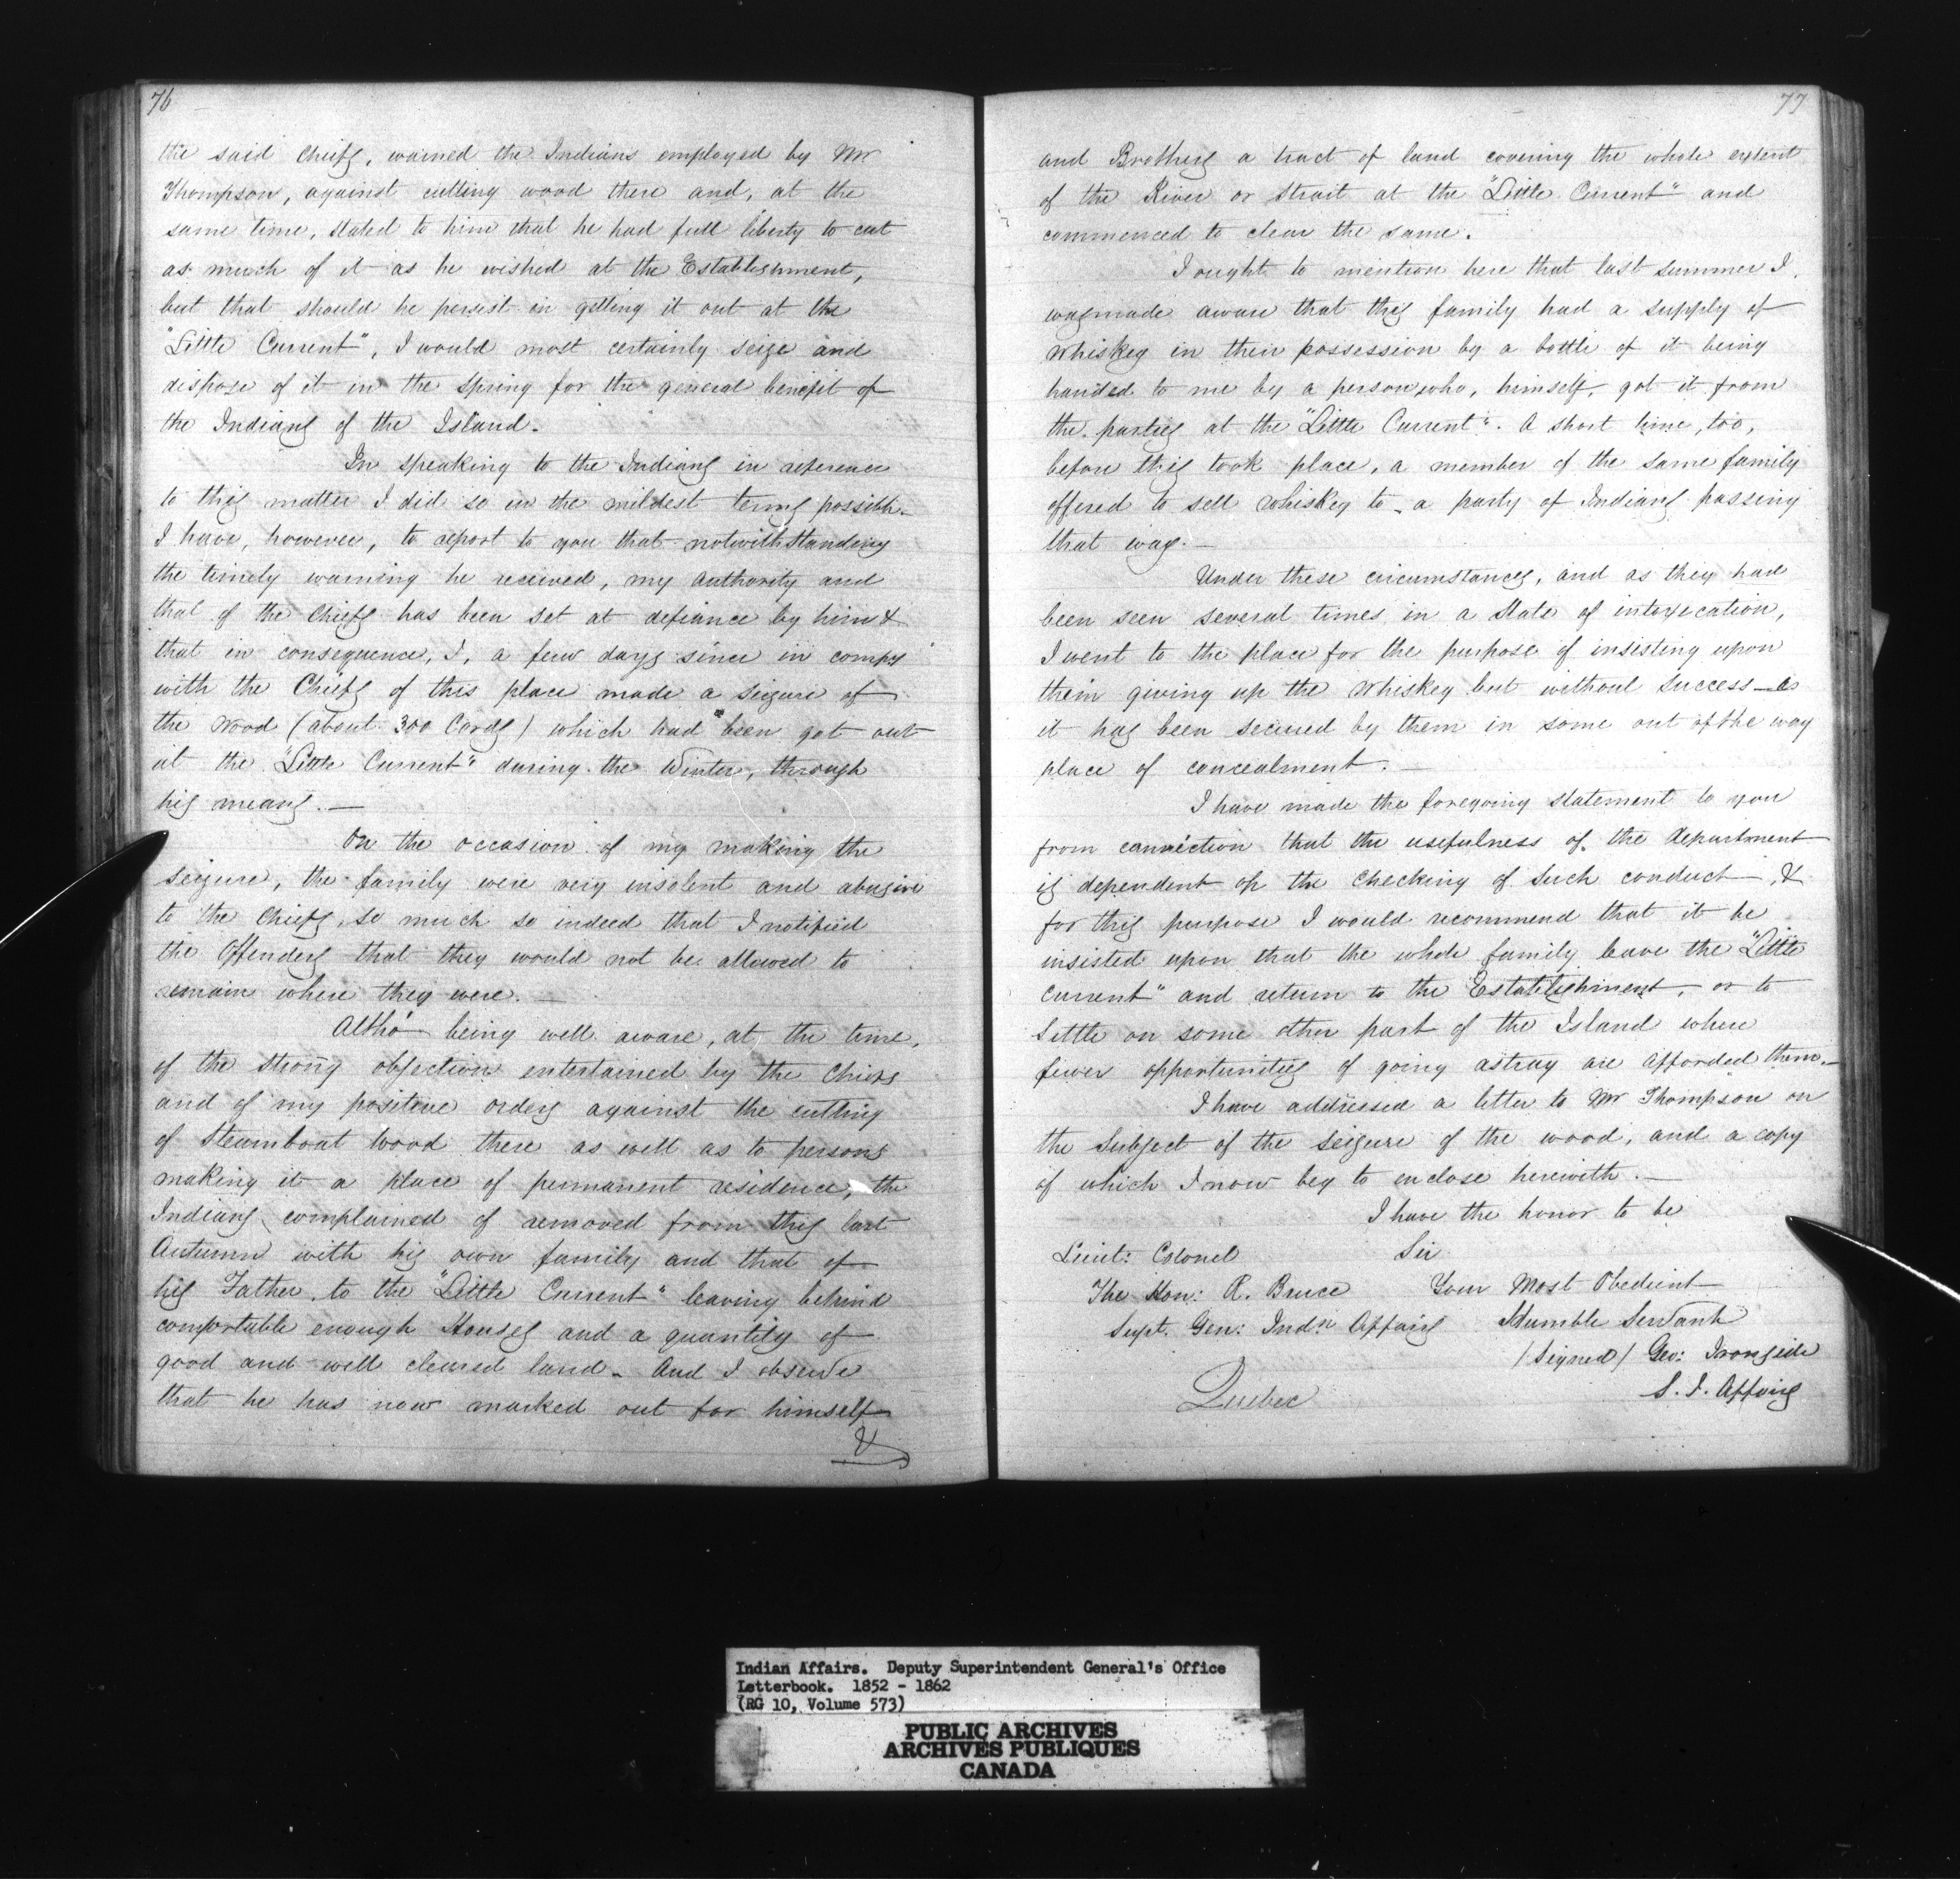 76
the said Chiefs, warned the Indians employed by Mr
Thompson, against cutting wood there and, at the
same time, stated to him that he had full liberty to cut
as much of it as he wished at the Establishment,
but that should he persist in getting it out at the
"Little Current", I would most certainly seize and
dispose of it in the Spring for the general benefit of
the Indians of the Island.
In speaking to the Indians in reference
to this matter I did so in the mildest terms possible.
I have, however, to report to you that notwithstanding
the timely warning he received, my authority and
that of the Chiefs has been set at defiance by him &
that in consequence, I, a few days since in compy
with the Chiefs of this place made a seizure of
the wood (about 300 Cords) which had been got out
at the "Little Current" during the Winter, through
his means. —
On the occasion of my making the
seizure, the family were very insolent and abusive
to the Chiefs, so much so indeed that I notified
the Offenders that they would not be allowed to
remain where they were. —
Altho' being well aware, at the time,
of the strong objection entertained by the Chiefs
and of my positive orders against the cutting
of Steamboat wood there as well as to persons
making it a place of permanent residence, the
Indians complained of removed from this last
Autumn with his own family and that of
his Father, to the "Little Current" leaving behind
comfortable enough Houses and a quantity of
good and well cleared land - And I observe
that he has now marked out for himself
&
77
and Brothers a tract of land covering the whole extent
of the River or Strait at the "Little Current" and
commenced to clear the same.
I ought to mention here that last summer I
was made aware that this family had a supply of
Whiskey in their possession by a bottle of it being
handed to me by a person who, himself, got it from
the parties at the "Little Current". A short time, too,
before this took place, a member of the same family
offered to sell Whiskey to a party of Indians passing
that way. —
Under these circumstances, and as they had
been seen several times in a state of intoxication,
I went to the place for the purpose of insisting upon
them giving up the Whiskey but without success — as
it has been secured by them in some out of the way
place of concealment. —
I have made the foregoing statement to you
from conviction that the usefulness of the Department
is dependent on the checking of such conduct —, &
for this purpose I would recommend that it be
insisted upon that the whole family leave the "Little
Current" and return to the Establishment, or to
Settle on some other part of the Island where
fewer opportunities of going astray are afforded them. —
I have addressed a letter to Mr Thompson on
the Subject of the seizure of the wood, and a copy
of which I now beg to enclose herewith. —
I have the honor to be
Lieut: Colonel Sir
The Hon: R. Bruce Your Most Obedient
Supt. Gen: Indn Affairs Humble Servant
(Signed) Geo: Ironside
Quebec S. I. Affairs
Indian Affairs. Deputy Superintendent General's Office
Letterbook. 1852 - 1862
(RG 10, Volume 573)
PUBLIC ARCHIVES
ARCHIVES PUBLIQUES
CANADA